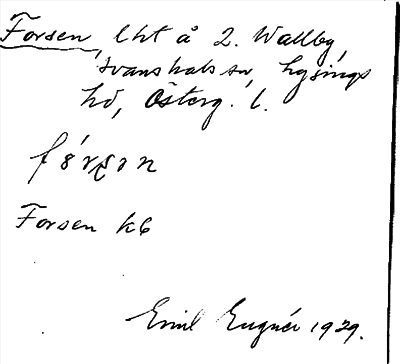 Forsen, lht å 2. Wallby,
Svanshals sn, Lysings
hd, Österg. l.
fórsɘn
Forsen kb
Emil Eugnér 1929.